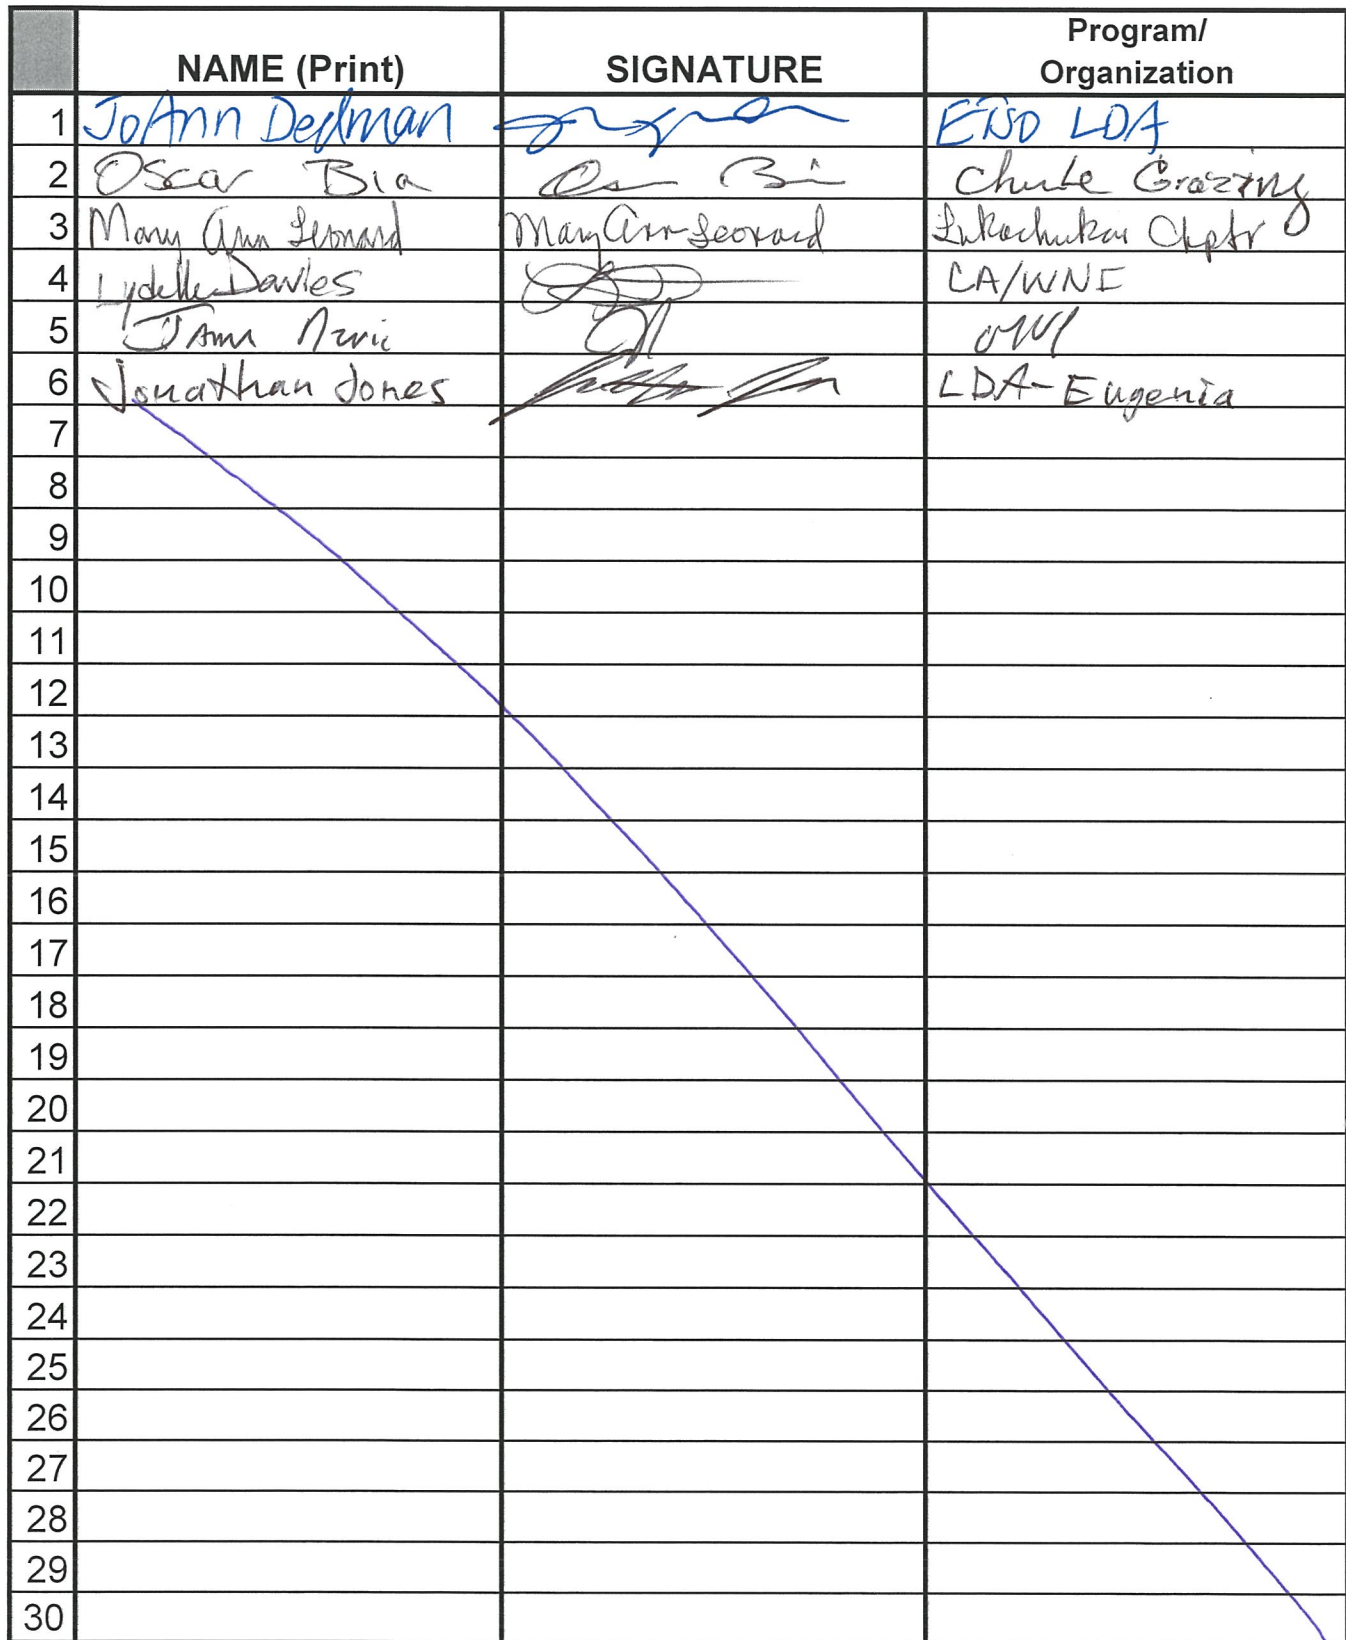 Program/
NAME (Print) SIGNATURE Organization
1 JoAnn Dedman
2 Oscar Bia Grazing
3 Mary Ann Leonard Mary Ann Leonard Lukachukai Chptr
4 Lydelle Davies CA/WNE
5
6 Jonathan Jones LDA-Eugenia
7
8
9
10
11
12
13
14
15
16
17
18
19
20
21
22
23
24
25
26
27
28
29
30